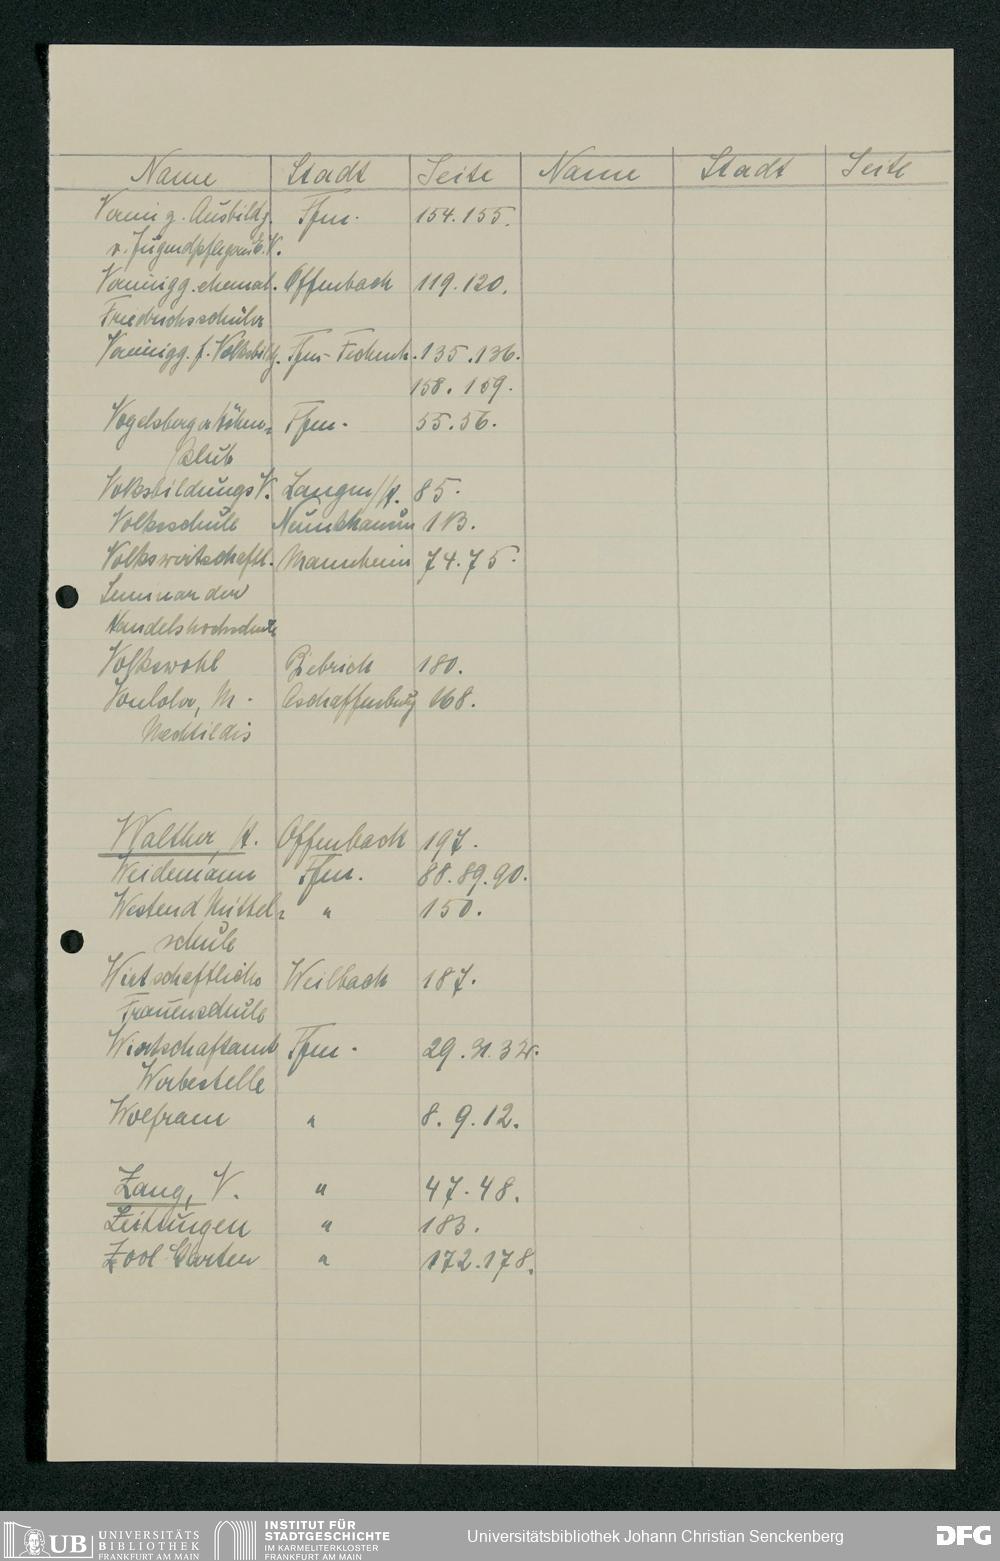 Name Stadt Seite Name Stadt Seite
Verein z. Ausbildg. Ffm. 154.155.
v. Jugendpflegern E.V.
Vereinigg. ehemal. Offenbach 119.120.
Friedrichsschüler
Vereinigg. f. Volksbildg. Ffm- Fechenh. 135.136.
158. 159.
Vogelsberger Höhen- Ffm. 55.56.
klub
VolksbildungsV. Langen/H. 85.
Volksschule Neunkhausen 113.
Volkswirtschaftl. Mannheim 74.75.
Seminar der
Handelshochschule
Volkswohl Biebrich 180.
M. Aschaffenburg 168.
Mechtildis
Walther, H. Offenbach 197.
Weidemann Ffm. 88.89.90.
Westend Mittel- " 150.
schule
Wirtschaftliche Weilbach 187.
Frauenschule
Wirtschaftsamt Ffm. 29.31.32.
Werbestelle
Wolfram " 8. 9. 12.
Zang, V. " 47.48.
Zeitungen " 183.
Zool Garten " 172.178.
UB UNIVERSITÄTS
BIBLIOTHEK
FRANKFURT AM MAIN
INSTITUT FÜR
STADTGESCHICHTE
IM KARMELITERKLOSTER
FRANKFURT AM MAIN
Universitätsbibliothek Johann Christian Senckenberg
DFG